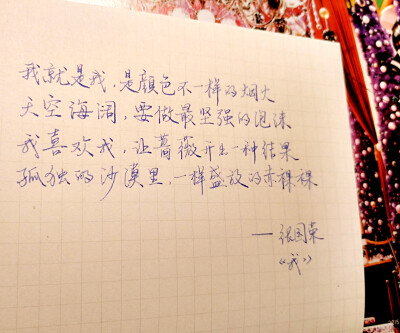 我就是我，是颜色不一样的烟火
天空海阔，要做最坚强的泡沫
我喜欢我，让蔷薇开出一种结果
孤独的沙漠里，一样盛放的赤裸裸
——张国荣
《我》